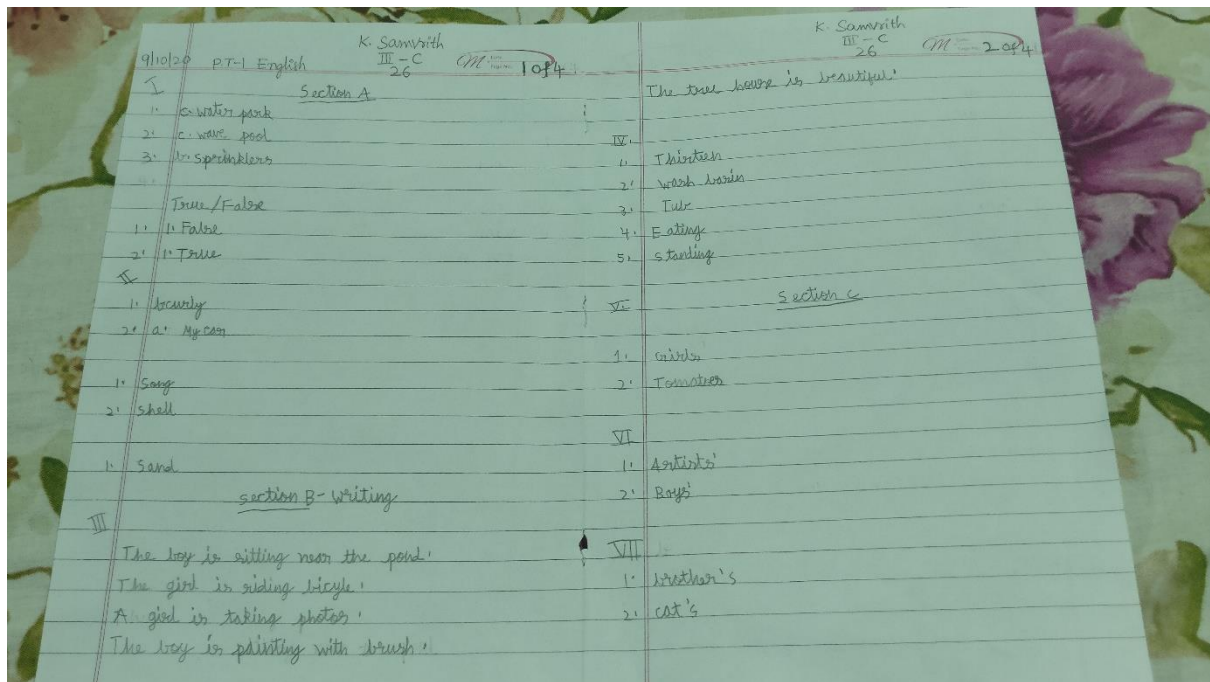 K. Samvrith
9/10/20 P.T-1 English III - C 1 of 4
26
Section A
I
1. c. water park
2. c. wave pool
3. b. sprinklers
True/False
1. 1. False
2. 1. True
II
1. b curly
2. a. My car
1. Song
2. Shell
1. Sand
Section B - Writing
III
The boy is sitting near the pond.
The girl is riding bicyle.
A girl is taking photos.
The boy is painting with brush.
K. Samvrith
III - C
26 2 of 4
The tree house is beautiful.
IV.
1. Thirteen
2. Wash basin
3. Tub
4. Eating
5. Standing
Section C
V.
1. Girls
2. Tomatoes
VI
1. Artists'
2. Boys'
VII
1. brother's
2. cat's